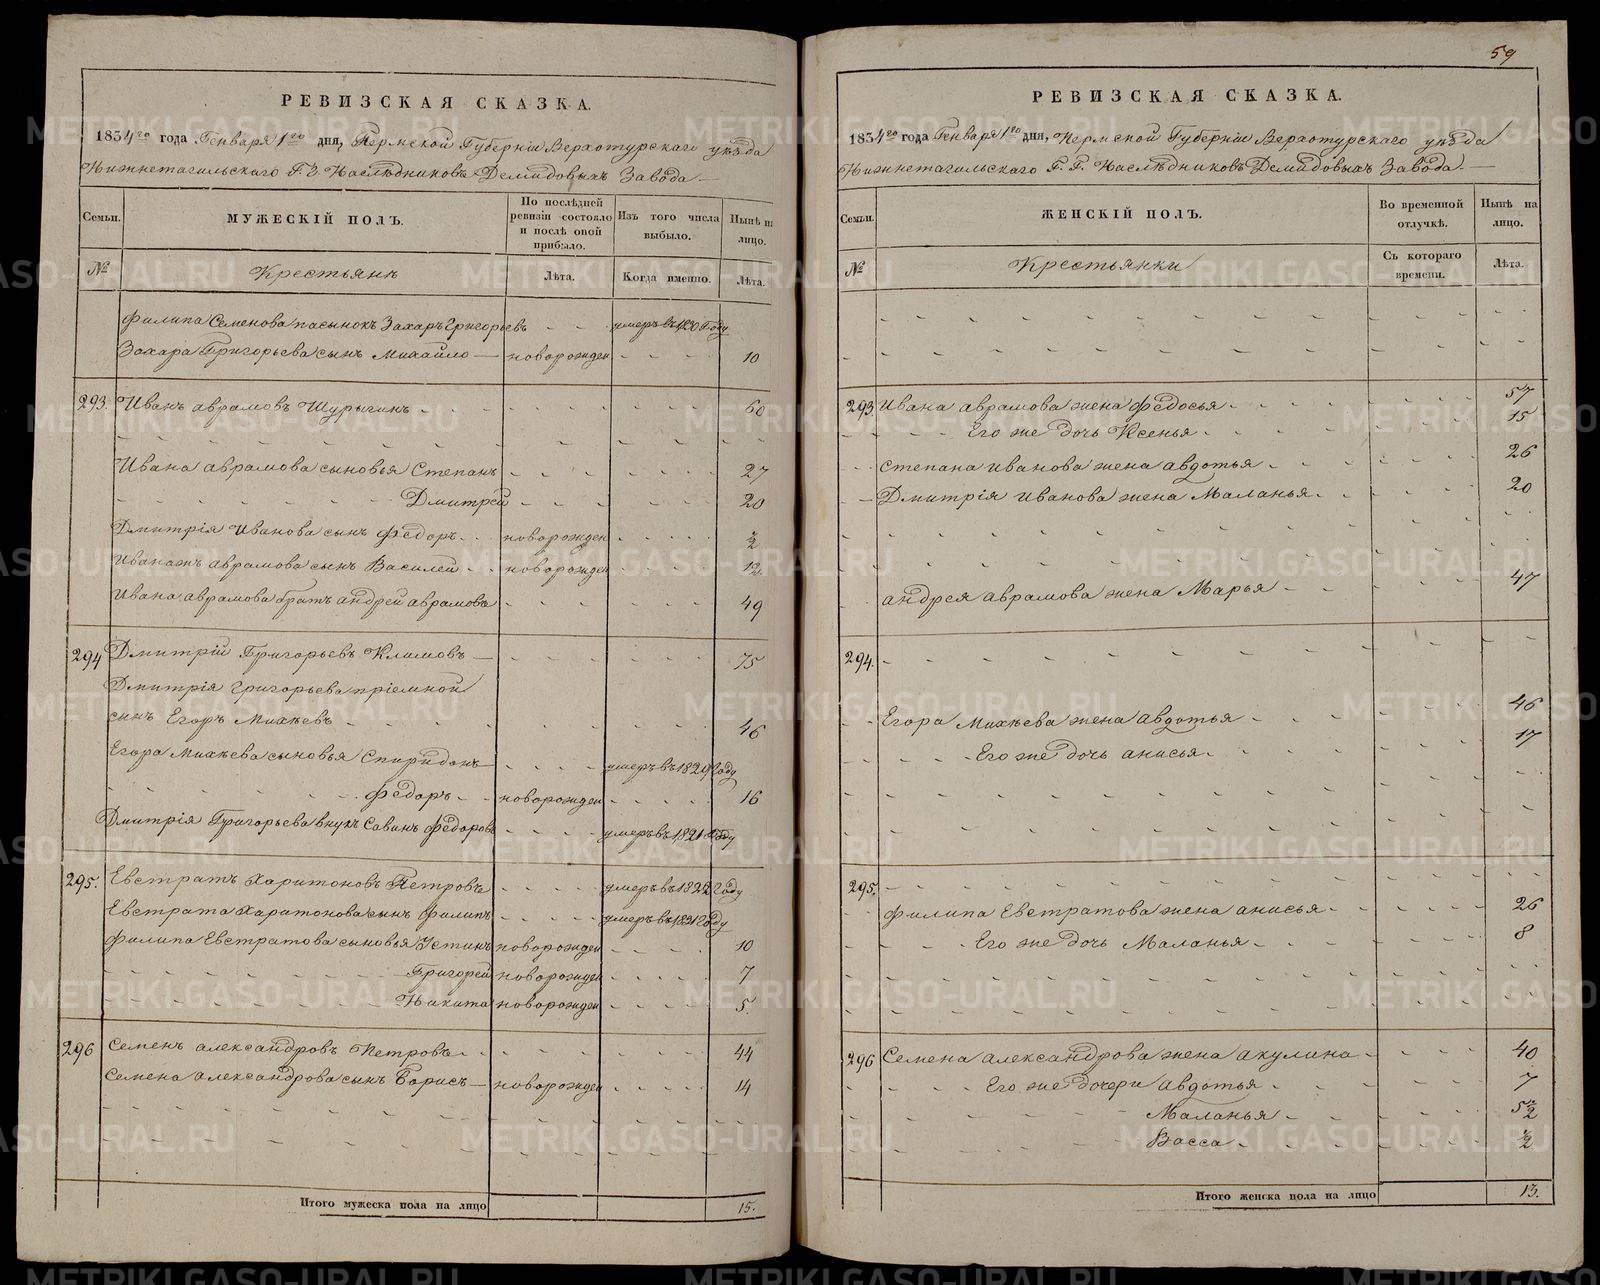 РЕВИЗСКАЯ СКАЗКА.
1834го года Генваря 1го дня, Пермской Губернии Верхотурскаго уѣзда
Нижнетагильскаго Г.Г. Наслѣдниковъ Демидовыхъ Завода
Семьи.
МУЖЕСКІЙ ПОЛЪ.
По послѣдней ревизіи состояло и послѣ оной прибыло.
Изъ того числа выбыло.
Нынѣ на лицо.
№
Крестьянѣ
Лѣта.
Когда именно.
Лѣта.
Филипа Семенова пасынокъ Захаръ Григорьевъ умеръ въ 1830 Году
Захара Григорьева сынъ Михайло новорожден 10
293. Иванъ аврамовъ Шурыгинъ 60
Ивана аврамова сыновья Степанъ 27
Дмитрей 20
Дмитрія Иванова сынъ Федоръ новорожден ½
Иванажъ аврамова сынъ Василей новорожден 12
Ивана аврамова братъ андрей аврамовъ 49
294 Дмитрій Григорьевъ Климовъ 75
Дмитрія Григорьева пріемной
сынъ Егоръ Михѣевъ 46
Егора Михѣева сыновья Спиридонъ умеръ въ 1829 Году
Федоръ новорожден 16
Дмитрія Григорьева внукъ Савинъ Федоровъ умеръ въ 1821 Году
295. Евстратъ Харитоновъ Петровъ умеръ въ 1822 Году
Евстрата Харитонова сынъ Филипъ умеръ въ 1831 Году
Филипа Евстратова сыновья Устинъ новорожден 10
Григорей новорожден 7
Никита новорожден 5.
296 Семенъ александровъ Петровъ 44
Семена Александрова сынъ Борисъ новорожден 14
Итого мужеска пола на лицо 15.
59
РЕВИЗСКАЯ СКАЗКА.
1834го года Генваря 1го дня, Пермской Губерніи Верхотурскаго уѣзда
Нижнетагильскаго Г. Г. Наслѣдниковъ Демидовыхъ Завода
Семьи.
ЖЕНСКІЙ ПОЛЪ.
Во временной отлучкѣ.
Нынѣ на лицо.
№
Крестьянки
Съ котораго времени.
Лѣта.
293 Ивана аврамова жена Федосья 57
Его же дочь Ксенья 15
Степана иванова жена авдотья 26
Дмитрія иванова жена Маланья 20
андрея аврамова жена Марья 47
294.
Егора Михѣева жена авдотья 46
Его же дочь анисья 17
295.
Филипа Евстратова жена анисья 26
Его же дочь Маланья 8
296 Семена Александрова жена акулина 40
Его же дочери авдотья 7
Маланья 5½
Васса ½
Итого женска пола на лицо 13.
METRIKI.GASO-URAL.RU